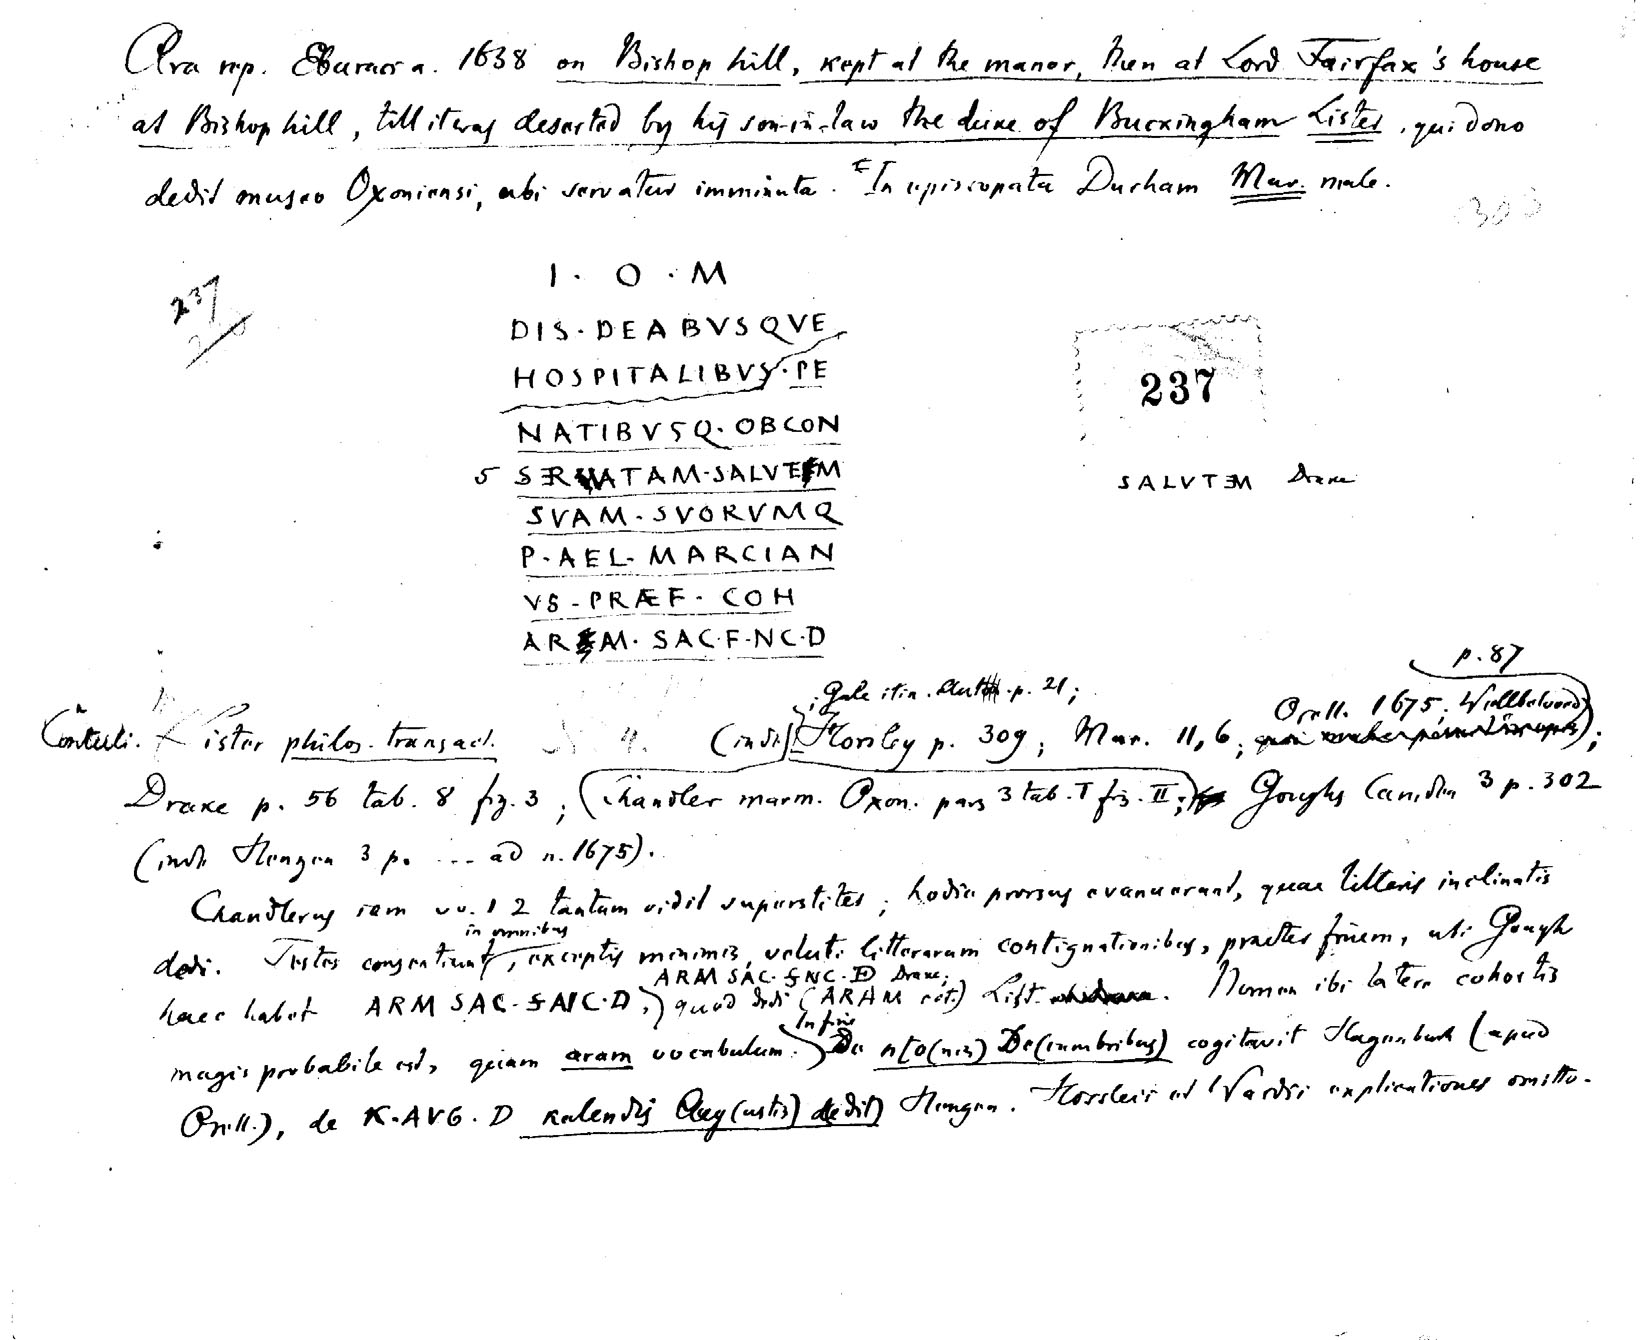 Ara rep. Eburaci a. 1638 on Bishop hill, kept at the manor, then at Lord Fairfax's house
at Bishop hill, till it was deserted by his son-in-law the duke of Buckingham Lister, qui dono
dedit museo Oxoniensi, ubi servatur imminuta. In episcopatu Durham Mur. male.
237
I · O · M
DIS · DEABVSQVE
HOSPITALIBVS · PE
NATIBVSQ · OBCON
5 SERVATAM · SALVTEM
SVAM · SVORVMQ
P · AEL · MARCIAN
VS · PRÆF · COH
ARAM · SAC · F · NC · D
237
SALVTEM Drake
p. 87
; Gale itin. p. 21;
Orell. 1675; Wellbeloved
Contuli. Lister philos. transact. 4. (inde) Horsley p. 309; Mur. 11, 6;
Drake p. 56 tab. 8 fig. 3; (Chandler marm. Oxon. pars 3 tab. I fig. II; Goughs Camden 3 p. 302
(inde Henzen 3 p. ... ad n. 1675).
Chandlerus iam vv. 1 2 tantum vidit superstites; hodie prorsus evanuerunt, quae litteris inclinatis
dedi. Testes consentiunt in omnibus, exceptis minimis, veluti litterarum contignationibus, praeter finem, ubi Gough
ARM SAC · F NC · D Drake;
haec habet ARM SAC · F AIC · D, quod dedi (ARAM cet.) List. Nomen ibi latere cohortis
magis probabile est, quam aram vocabulum. In fine De n[o(nis) De(cembribus) cogitavit Hagenbuch (apud
Orell.), de K · AVG · D kalendis Aug(ustis) dedit) Henzen. Horsleii et Wardii explicationes omitto.